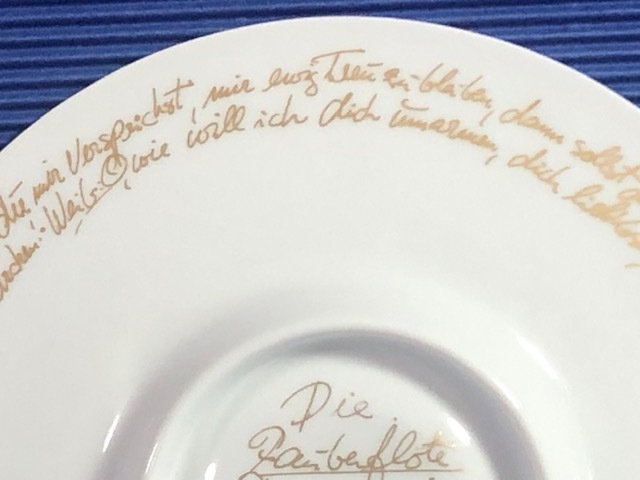 du mir versprichst, mir ewig Treu zu bleiben, dann sollst
Weib: wie will ich dich umarmen, dich
Die
Zauberflöte